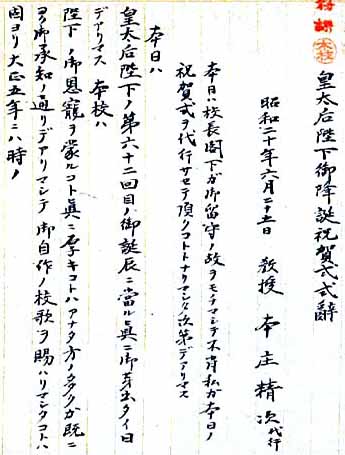 皇太后陛下御降誕祝賀式式辞
昭和二十年六月二十五日 教授 本庄精次代行
本日ハ校長閣下ガ御留守ノ故ヲモチマシテ不肖私ガ本日ノ
祝賀式ヲ代行サセテ頂クコトトナリマシタ次第デアリマス
本日ハ
皇太后陛下ノ第六十二回目ノ御誕辰ニ當ル真ニ御芽出タイ日
デアリマス 本校ハ
陛下ノ御恩寵ヲ蒙ルコト真ニ厚キコトハアナタ方ノ多クガ既ニ
ヨク御承知ノ通リデアリマシテ御自作ノ校歌ヲ賜ハリマシタコトハ
固ヨリ大正五年ニハ時ノ